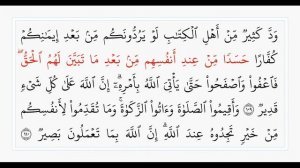 وَدَّ كَثِيرٌ مِّنْ أَهْلِ ٱلْكِتَٰبِ لَوْ يَرُدُّونَكُم مِّنۢ بَعْدِ إِيمَٰنِكُمْ
كُفَّارًا حَسَدًا مِّنْ عِندِ أَنفُسِهِم مِّنۢ بَعْدِ مَا تَبَيَّنَ لَهُمُ ٱلْحَقُّ ۖ
فَٱعْفُوا۟ وَٱصْفَحُوا۟ حَتَّىٰ يَأْتِىَ ٱللَّهُ بِأَمْرِهِۦٓ ۗ إِنَّ ٱللَّهَ عَلَىٰ كُلِّ شَىْءٍ
قَدِيرٌ ۝١٠٩ وَأَقِيمُوا۟ ٱلصَّلَوٰةَ وَءَاتُوا۟ ٱلزَّكَوٰةَ ۚ وَمَا تُقَدِّمُوا۟ لِأَنفُسِكُم
مِّنْ خَيْرٍ تَجِدُوهُ عِندَ ٱللَّهِ ۗ إِنَّ ٱللَّهَ بِمَا تَعْمَلُونَ بَصِيرٌ ۝١١٠